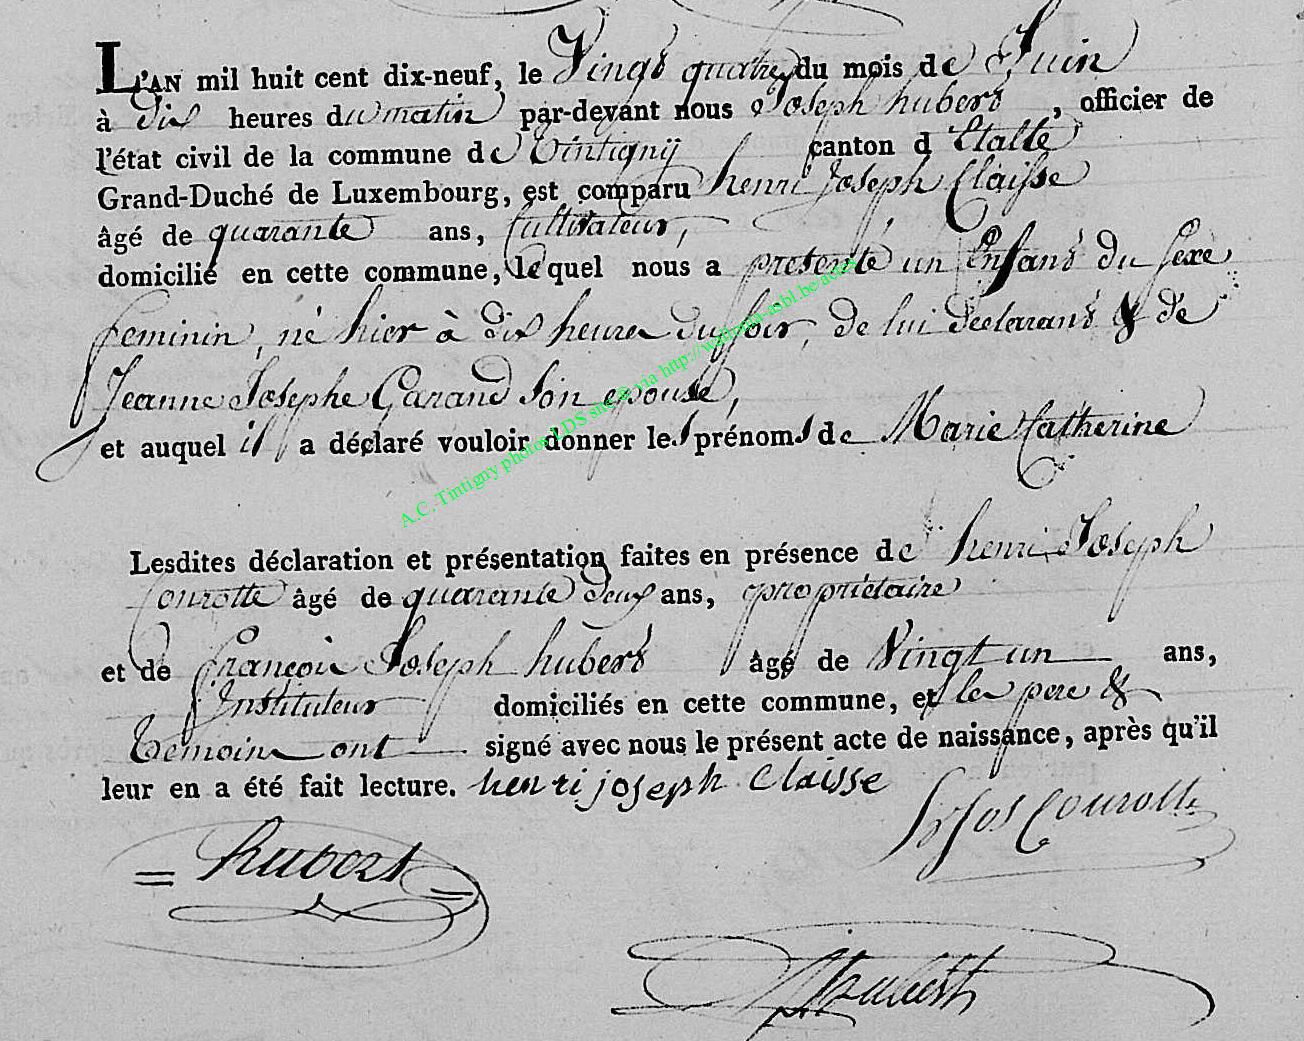 L'AN mil huit cent dix-neuf, le Vingt quatre du mois de Juin
à dix heures du matin par-devant nous Joseph hubert, officier de
l'état civil de la commune de Tintigny canton d'Etalle
Grand-Duché de Luxembourg, est comparu henri Joseph Claisse
âgé de quarante ans, Cultivateur,
domicilié en cette commune, lequel nous a presenté un Enfant du sexe
feminin, né hier à dix heures du soir, de lui declarant & de
Jeanne Josephe Garand son epouse,
et auquel il a déclaré vouloir donner les prénoms de Marie Catherine
Lesdites déclaration et présentation faites en présence de henri Joseph
Courotte âgé de quarante deux ans, proprietaire
et de françois Joseph hubert âgé de Vingt un ans,
Instituteur domiciliés en cette commune, et les pere &
temoins ont signé avec nous le présent acte de naissance, après qu'il
leur en a été fait lecture. henri joseph Claisse
Courotte
= hubert =
Hubert
A.C.-Tintigny photos LDS snc © via http://wallonia-asbl.be/actes